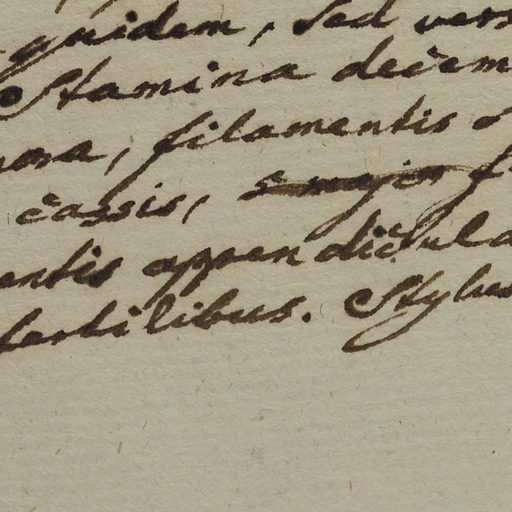 quidem, sed vers
Stamina decem
filamentis
cassis, 5 major f
entis appendicula
fertilibus. Stylus